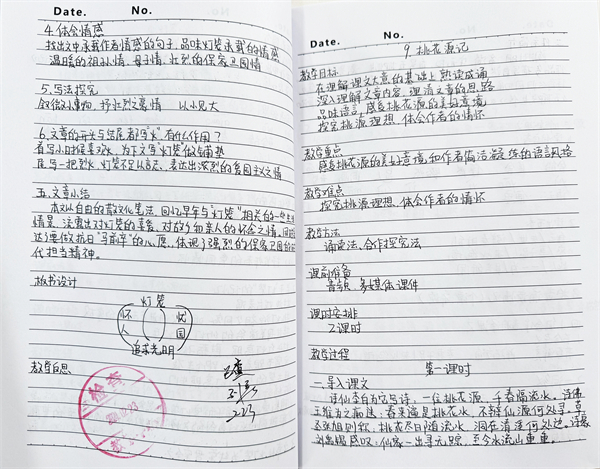 Date. No.
4. 体会情感
找出文中承载作者情感的句子，品味灯笼承载的情感
温暖的祖孙情、母子情、壮烈的保家卫国情
5. 写法探究
叙微小事物，抒壮烈之豪情 以小见大
6. 文章的开头与结尾都写"火"，有什么作用？
首写小时候喜欢火，为下文写"灯笼"做铺垫
尾写一把烈火，灯笼不足以言志，表达出浓烈的爱国主义之情
五、文章小结
本文以自由的散文化笔法，回忆早年与"灯笼"相关的一些生活
情景，流露出对灯笼的喜爱，对故乡亲人的怀念之情，同时
达了要做抗日"马前卒"的心愿，体现了强烈的保家卫国的时
代担当精神。
板书设计
灯笼
怀人
忧国
追求光明
教学反思
检查
已查
Date. No.
9. 桃花源记
教学目标
在理解课文大意的基础上熟读成诵
深入理解文章内容，理清文章的思路
品味语言，感受桃花源的美好意境
探究桃源理想，体会作者的情怀
教学重点
感受桃花源的美好意境和作者简洁凝练的语言风格
教学难点
探究桃源理想、体会作者的情怀
教学方法
诵读法、合作探究法
课前准备
音频、多媒体课件
课时安排
2课时
教学过程
第一课时
一、导入课文
诗仙李白为它写诗，一往桃花源，千春隔流水。诗佛
王维为之痴迷：春来遍是桃花水，不辨仙源何处寻。草
圣张旭则称，桃花尽日随流水，洞在清溪何处边。诗豪
刘禹锡感叹：仙家一出寻无踪，至今水流山重重。